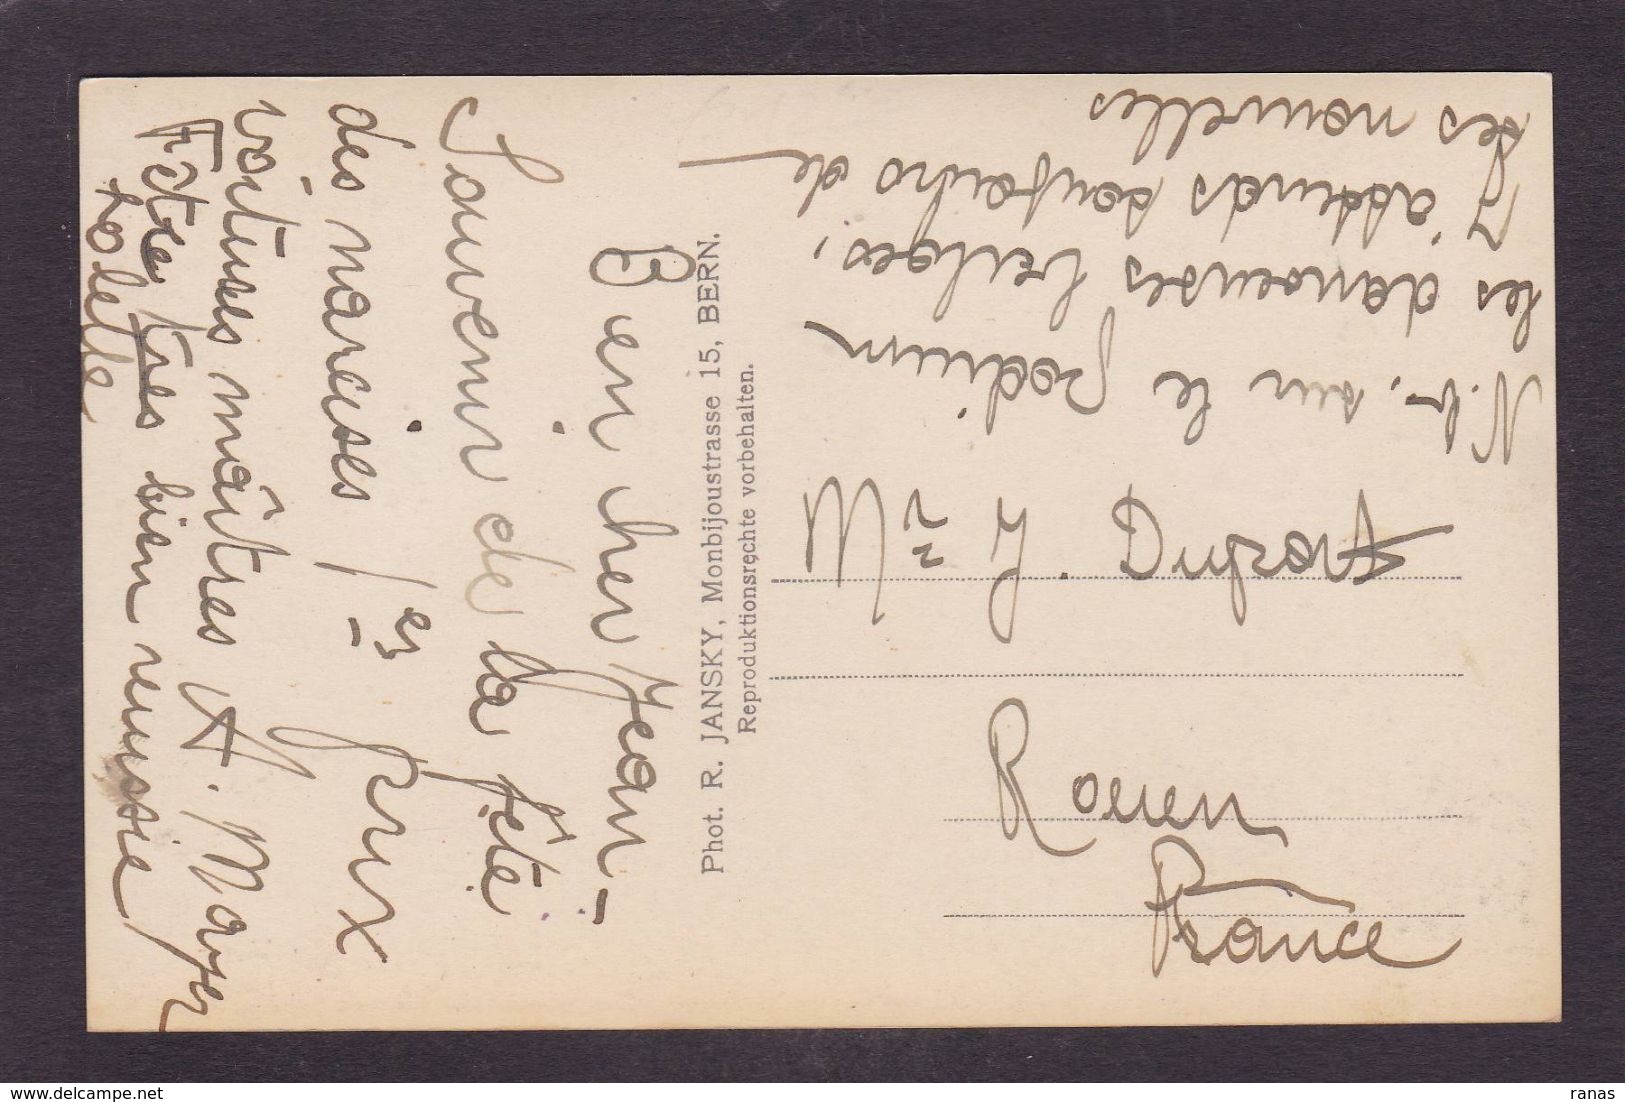 Bien cher Jean -
Souvenir de la fête
des narcisses 1er prix
voitures maîtres A. Mayer
Fête très bien réussie
Lolette
Phot. R. JANSKY, Monbijoustrasse 15, BERN.
Reproduktionsrechte vorbehalten.
Rouen
France
N.b. sur le podium
les danseuses belges,
J'attends toujours de
tes nouvelles
ranas
www.delcampe.net